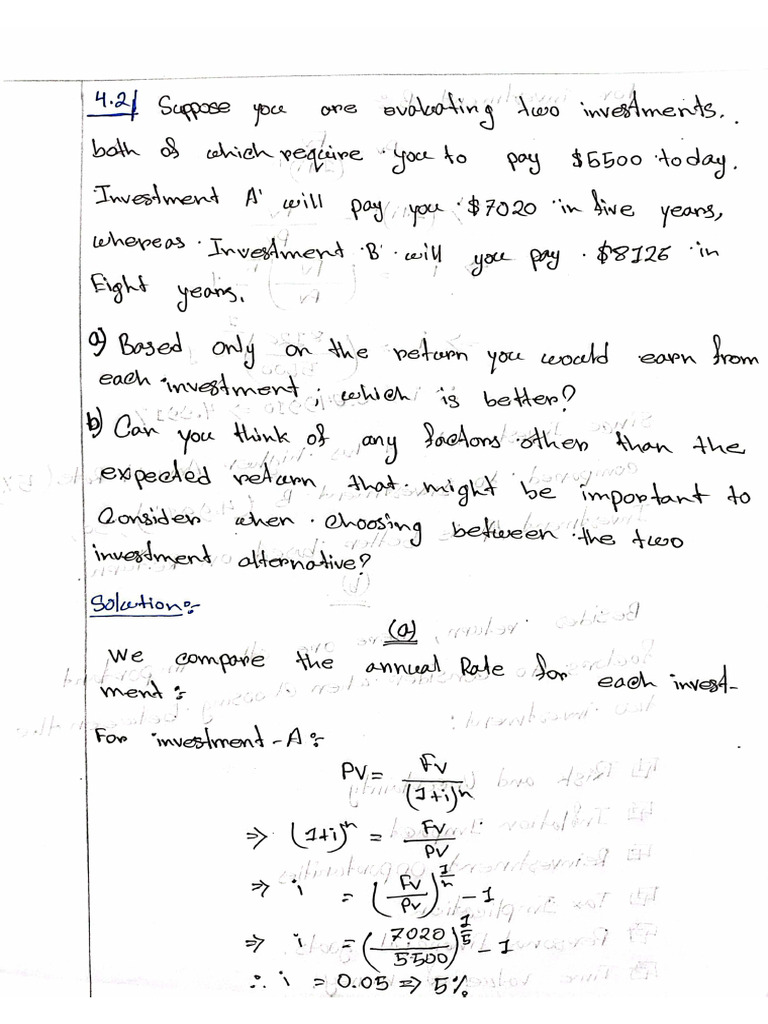 4.2/ Suppose you are evaluating two investments.
both of which require you to pay $5500 today.
Investment 'A' will pay you $7020 in five years,
whereas Investment 'B' will you pay $8126 in
Eight years.
a) Based only on the return you would earn from
each investment, which is better?
b) Can you think of any factors other than the
expected return that might be important to
Consider when choosing between the two
investment alternative?
Solution:-
(a)
We compare the annual Rate for each invest-
ment:
For investment-A:-
PV = FV/(1+i)^n
⇒ (1+i)^n = FV/PV
⇒ i = (FV/PV)^(1/n) - 1
⇒ i = (7020/5500)^(1/5) - 1
∴ i = 0.05 ⇒ 5%